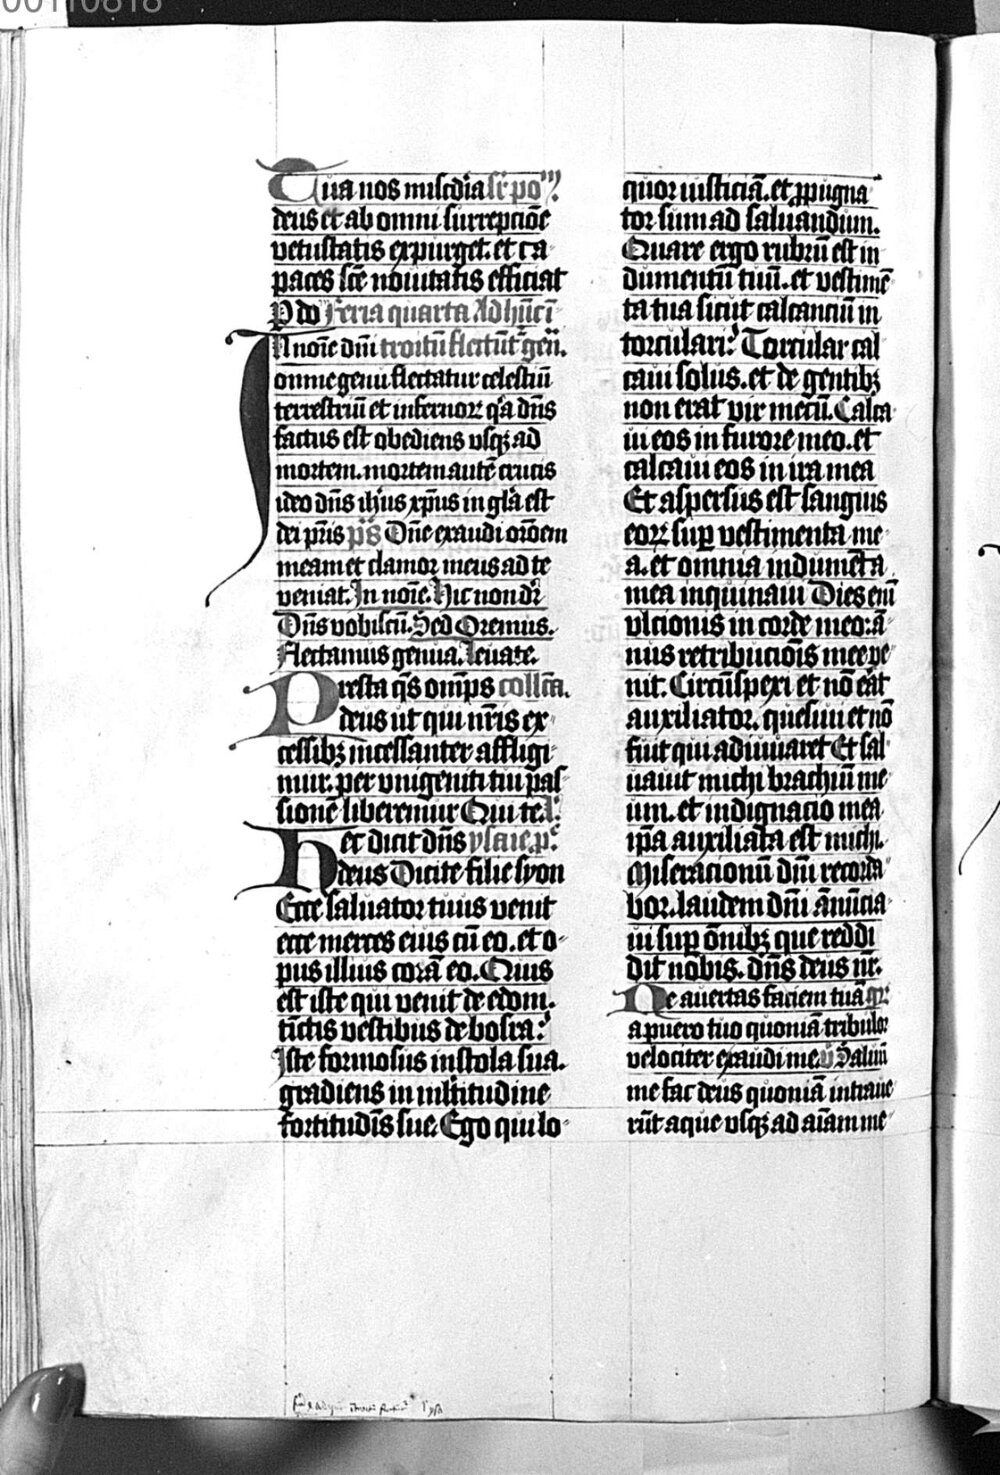 00110818
Tua nos misc̄dia sr̄ po
deus et ab omni surrepciōe
vetustatis expurget. et ca
paces sc̄e nouitatis efficiat
P do Feria quarta Ad hūc ī
In noīe dn̄i troitū flectūt gen̄.
omne genu flectatur celestiū
terrestriū et infernoꝝ q̇a dn̄s
factus est obediens usqꝫ ad
mortem. mortem autē crucis
ideo dn̄s ih̄us xp̄us in gl̄a est
dei pr̄is ps̄ Dn̄e exaudi orōem
meam et clamor meus ad te
veniat. In noīe. Hic non dr̄
Dn̄s vobiscū. Sed Oremus.
Flectamus genua. leuate.
Presta q̄s om̄ps coll̄ca.
deus ut qui nr̄is ex
cessibꝫ incessanter affligi
mur. per vnigeniti tui pas
sionē liberemur Qui te.
Hec dicit dn̄s ysaie p̄.
deus Dicite filie syon
Ecce saluator tuus venit
ecce merces eius cū eo. et o
pus illius corā eo. Quis
est iste qui venit de edom.
tīctis vestibus de bosra?
Iste formosus in stola sua.
gradiens in ml̄titudine
fortitudīs sue. Ego qui lo
quor iusticiā. et ꝓpugna
tor sum ad saluandum.
Quare ergo rubrū est in
dumentū tuū. et vestimē
ta tua sicut calcanciū in
torculari? Torcular cal
caui solus. et de gentibꝫ
non erat vir mecū. Calca
ui eos in furore meo. et
calcaui eos in ira mea
Et aspersus est sanguis
eoꝝ sup̄ vestimenta me
a. et omnia indumēta
mea inquinaui Dies eni̅
vlcionis in corde meo: ā
nus retribuciōis mee ve
nit. Circūspexi et nō erāt
auxiliator. quesiui et nō
fuit qui adiuuaret Et sal
uauit michi brachiū me
um. et indignacio mea
ip̄a auxiliata est michi.
Miseracionū dn̄i recorda
bor. laudem dn̄i ānūcia
ui sup̄ ōnibꝫ que reddi
dit nobis. dn̄s deus nr̄.
Ne auertas faciem tuā gr̄
a puero tuo quoniā tribulor
velociter exaudi me. v̄ Saluū
me fac deus quoniā intraue
rūt aque usqꝫ ad aīam me